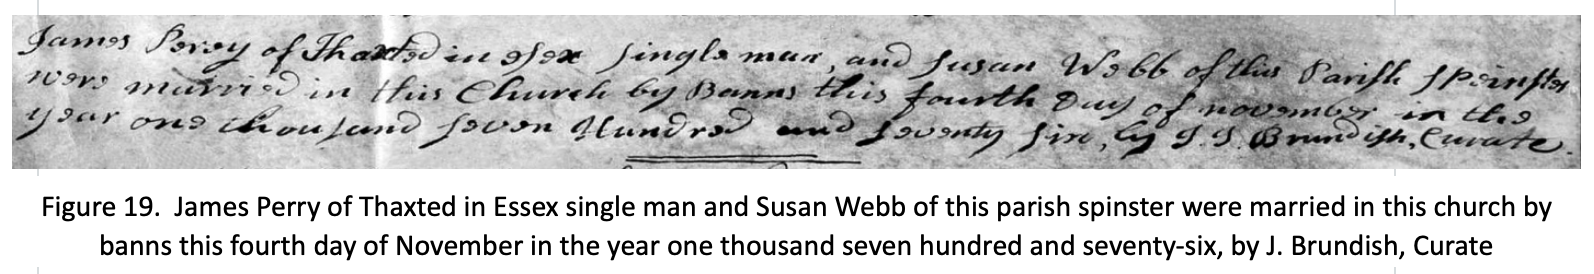 James Perry of Thaxted in Esex single man, and Susan Webb of this Parish Speinster
were married in this Church by Banns this fourth Day of november in the
year one thousand seven Hundred and seventy six, by J. J. Brundish, Curate.
Figure 19. James Perry of Thaxted in Essex single man and Susan Webb of this parish spinster were married in this church by
banns this fourth day of November in the year one thousand seven hundred and seventy-six, by J. Brundish, Curate